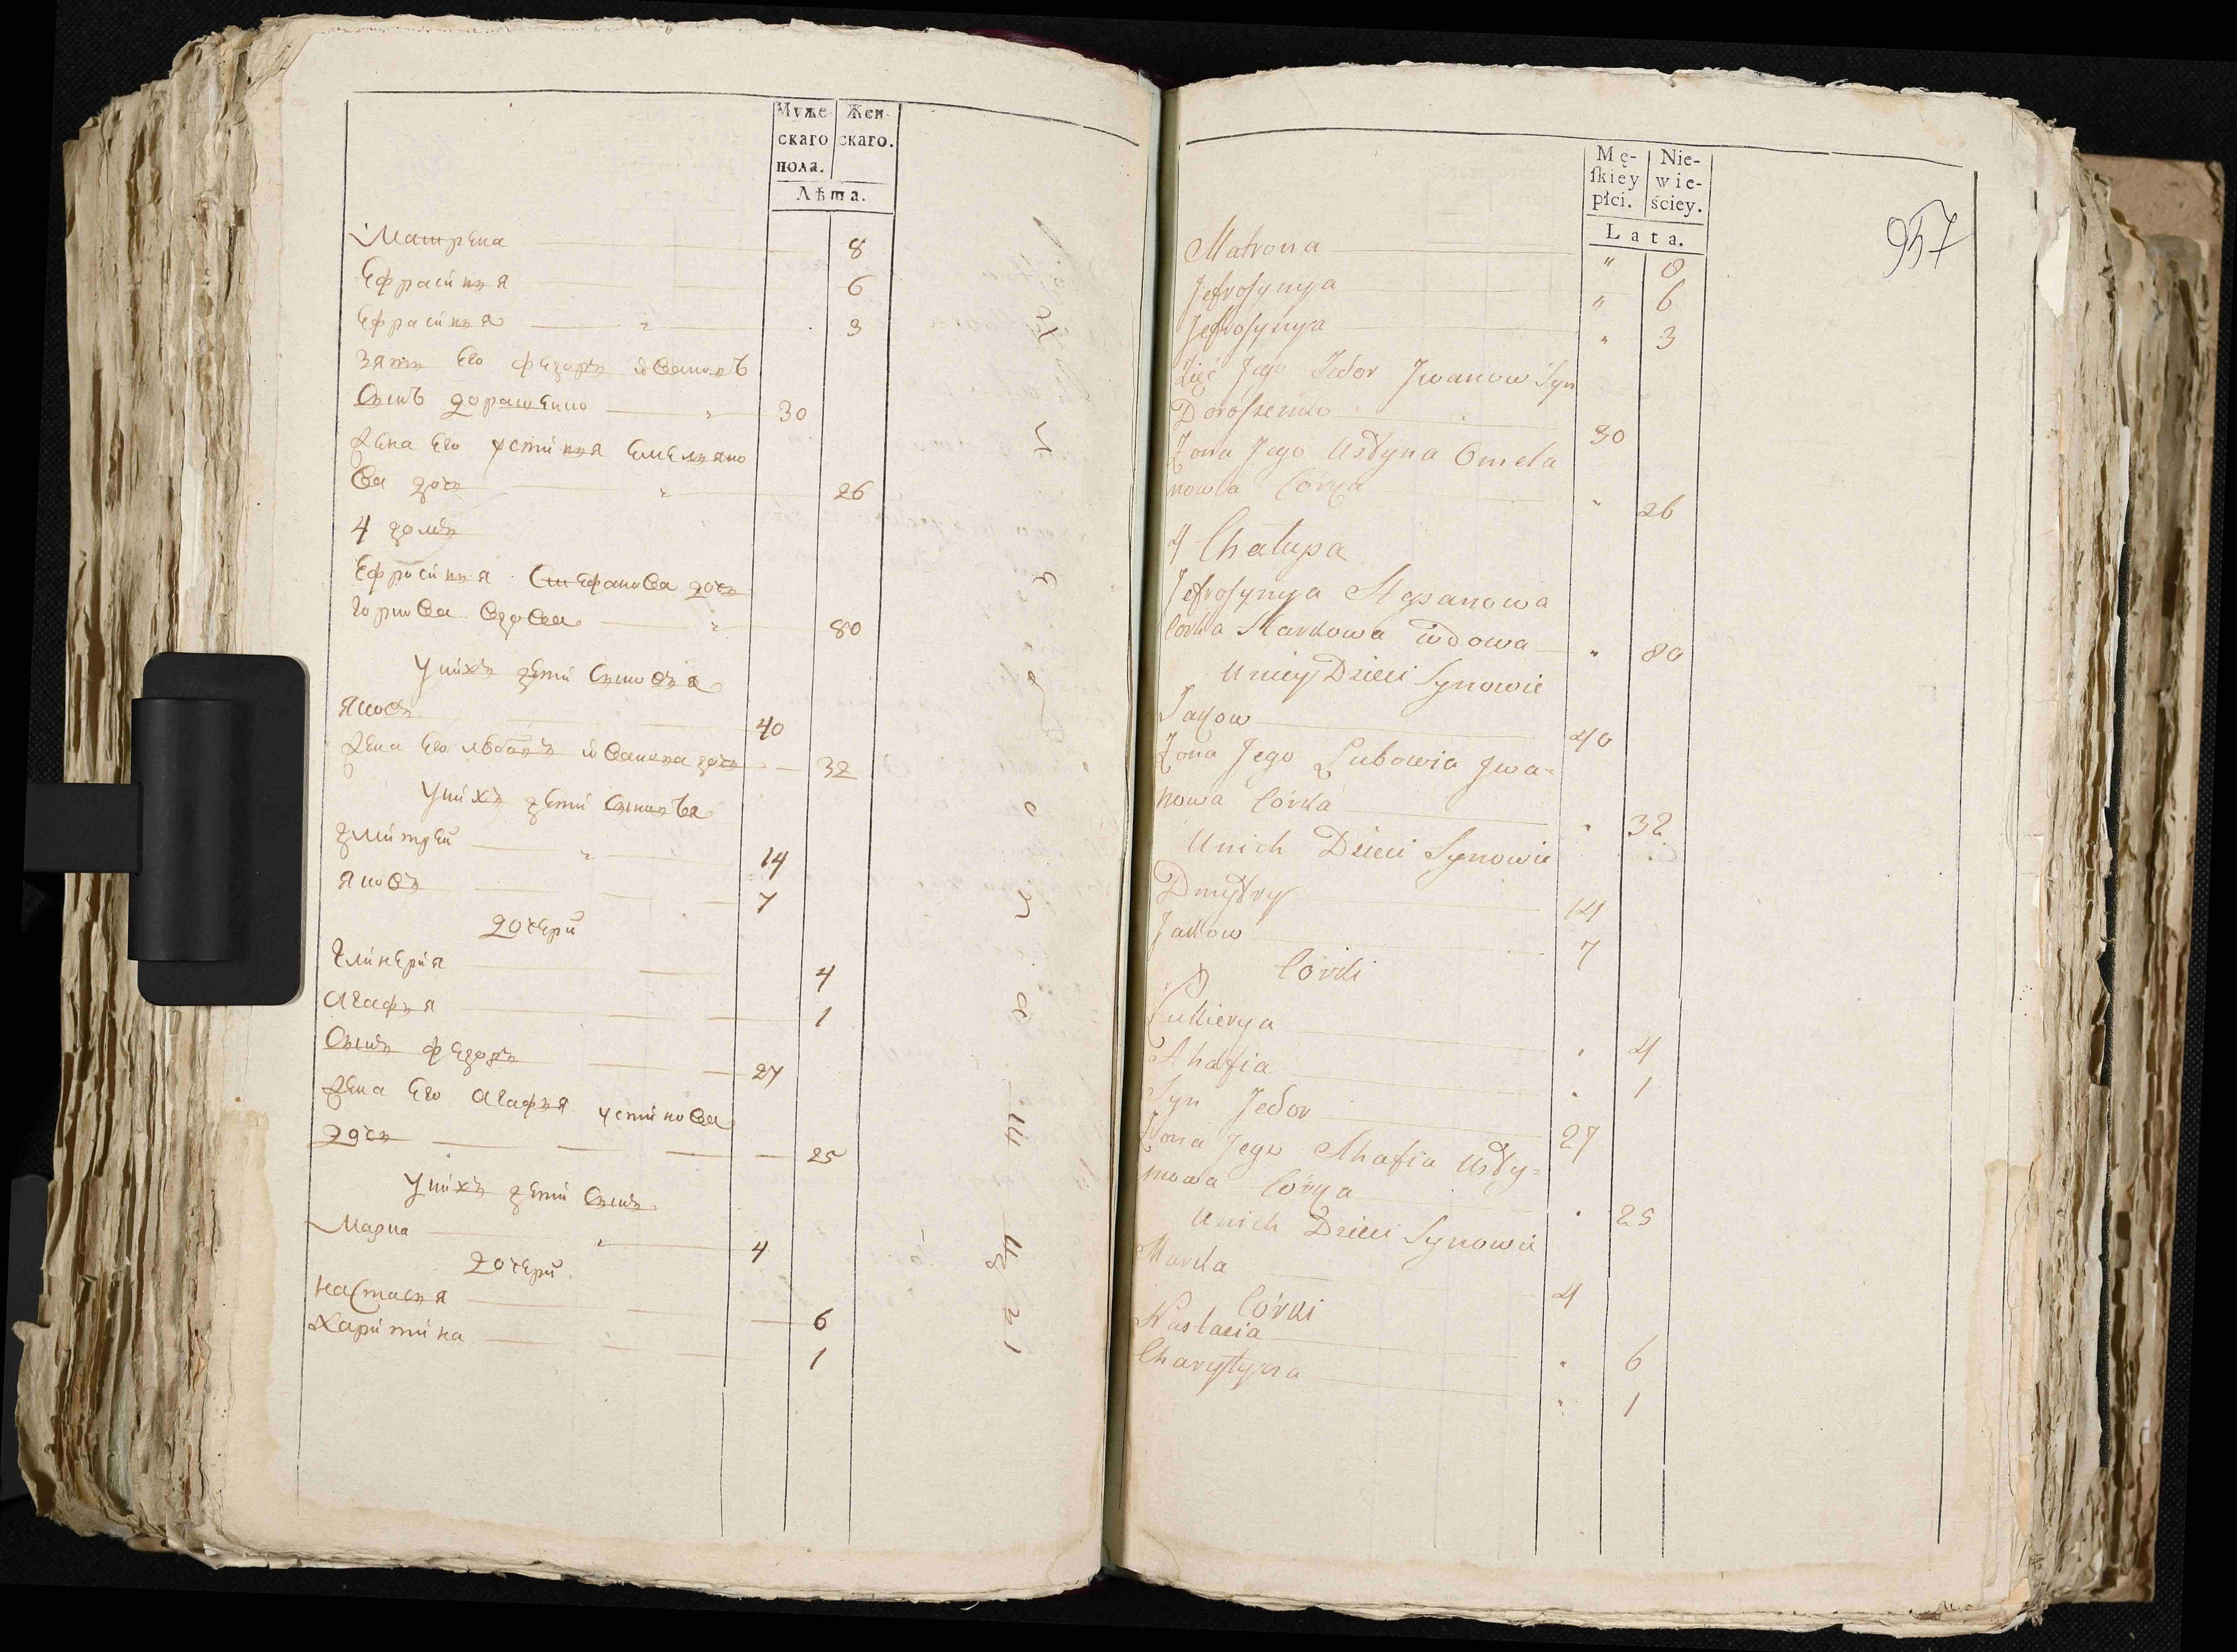 Муже- Жен-
скаго скаго.
пола.
Лѣта.
Матрена 8
Ефрасиня 6
Ефрасиня 3
зять Его Федоръ Ивановъ
Сынъ дорашенко 30
Жена Его Устиния Емеляно
ва дочь 26
4 домъ
Ефросиния Стефанова дочь
вдова 80
У них дети Сыновя
Яковъ 40
Жена Его Ивановна дочь 32
У них дети Сыновя
Дмитрей 14
Яковъ 7
дочери
Гликерия 4
Агафия 1
Сынъ Федоръ 27
Жена Его Агафия Устинова
дочь 25
У них дети Сынъ
Марко 4
дочери
Настасия 6
Харитина 1
Mę- Nie-
ſkiey wie-
płci. ściey.
Lata.
957
Matrona " 8
Jefrosynya " 6
Jefrosynya " 3
Zięć Jego Fedor Jwanow Syn
Doroszenko 30
Zona Jego Ustyna Omela
nowa Córka " 26
4 Chałupa
Jefrosynya Stepanowa
Córka Karkowa wdowa " 80
Uniey Dzieci Synowie
Jakow 40
Zona Jego Lubowia Jwa=
nowa Córka " 32
Unich Dzieci Synowie
Dmytry 14
Jakow 7
Córki
Łukierya " 4
Ahafia " 1
Syn Fedor 27
Zona Jego Ahafia Usty=
mowa Córka " 25
Unich Dzieci Synowie
Marko 4
Córki
Nastasia " 6
Charytyna " 1